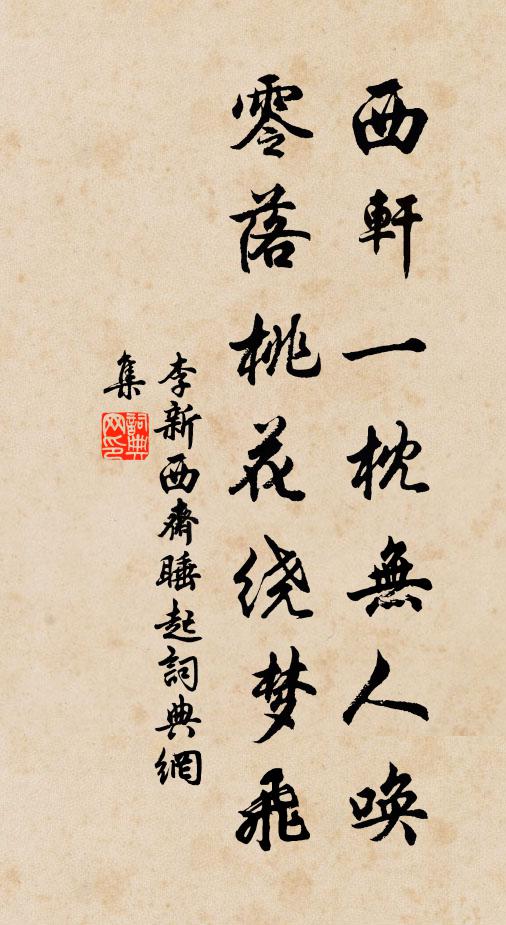 西軒一枕無人唤
零落桃花绕梦飛
李新西齋睡起詞典網
集
詞典
网印